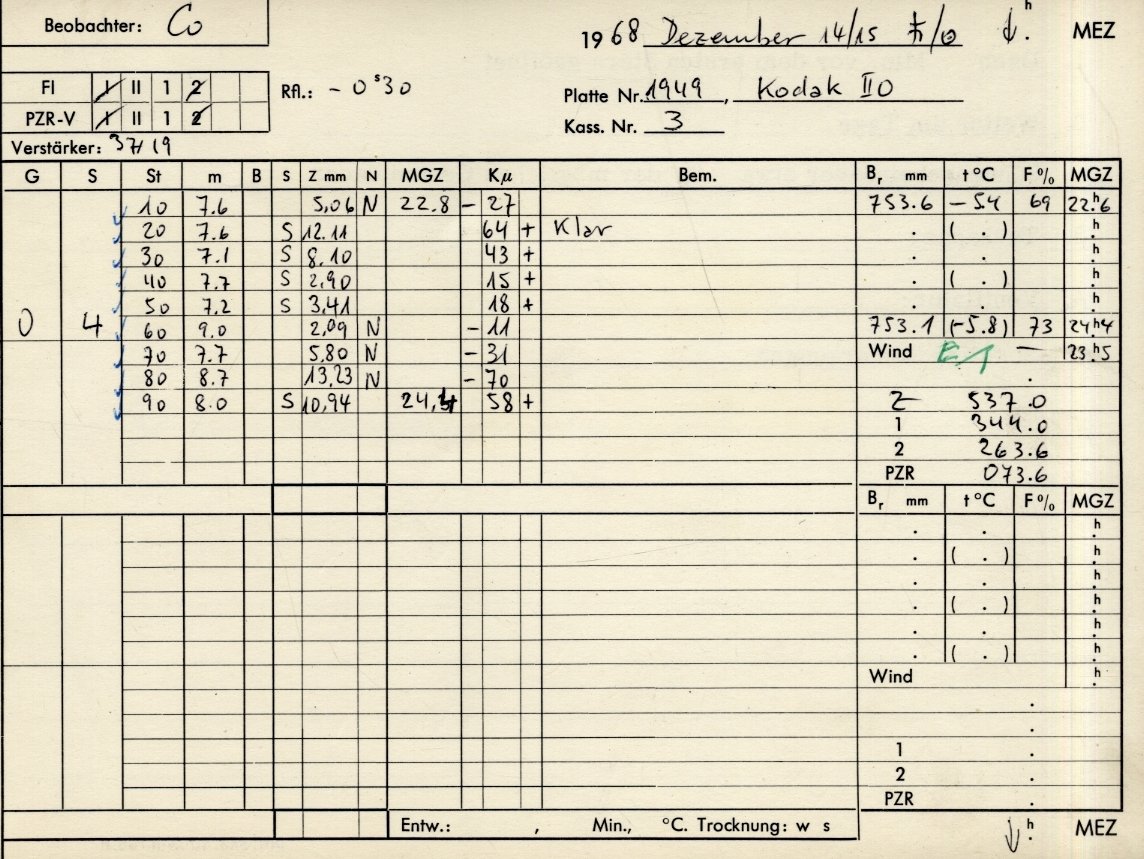 Beobachter: Co
1968 Dezember 14/15 ♄/☉ h MEZ
FI I II 1 2 Rfl.: - 0 s 30
PZR-V I II 1 2
Platte Nr. 1949, Kodak IIO
Kass. Nr. 3
Verstärker: 37/19
G S St m B S Z mm N MGZ Kμ Bem. Br mm t°C F% MGZ
10 7.6 5,06 N 22.8 - 27 753.6 -5.4 69 22.h6
20 7.6 S 12.11 64 + Klar . ( . ) h
30 7.1 S 8.10 43 + . . h
40 7.7 S 2,90 15 + . ( . ) h
50 7.2 S 3,41 18 + . . h
0 4 60 9.0 2,09 N - 11 753.1 (-5.8) 73 24h4
70 7.7 5,80 N - 31 Wind E1 — 23.h5
80 8.7 13,23 N - 70 .
90 8.0 S 10,94 24,4 58 + Z 537.0
1 344.0
2 263.6
PZR 073.6
Br mm t°C F% MGZ
. . h
. ( . ) h
. . h
. ( . ) h
. . h
. ( . ) h
Wind h
.
.
1 .
2 .
PZR .
Entw.: , Min., °C. Trocknung: w s h MEZ